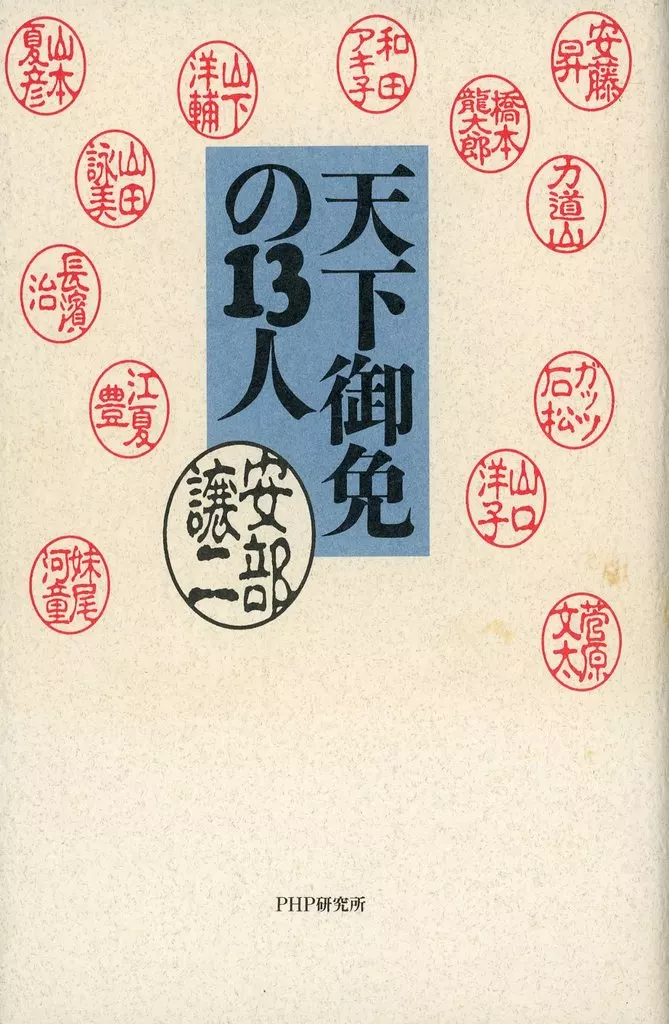 安藤
昇
和田
アキ子
山下
洋輔
山本
夏彦
橋本
龍太郎
山田
詠美
力道山
長濱
治
ガッツ
石松
江夏
豊
山口
洋子
妹尾
河童
菅原
文太
天下御免
の13人
安部
譲二
PHP研究所